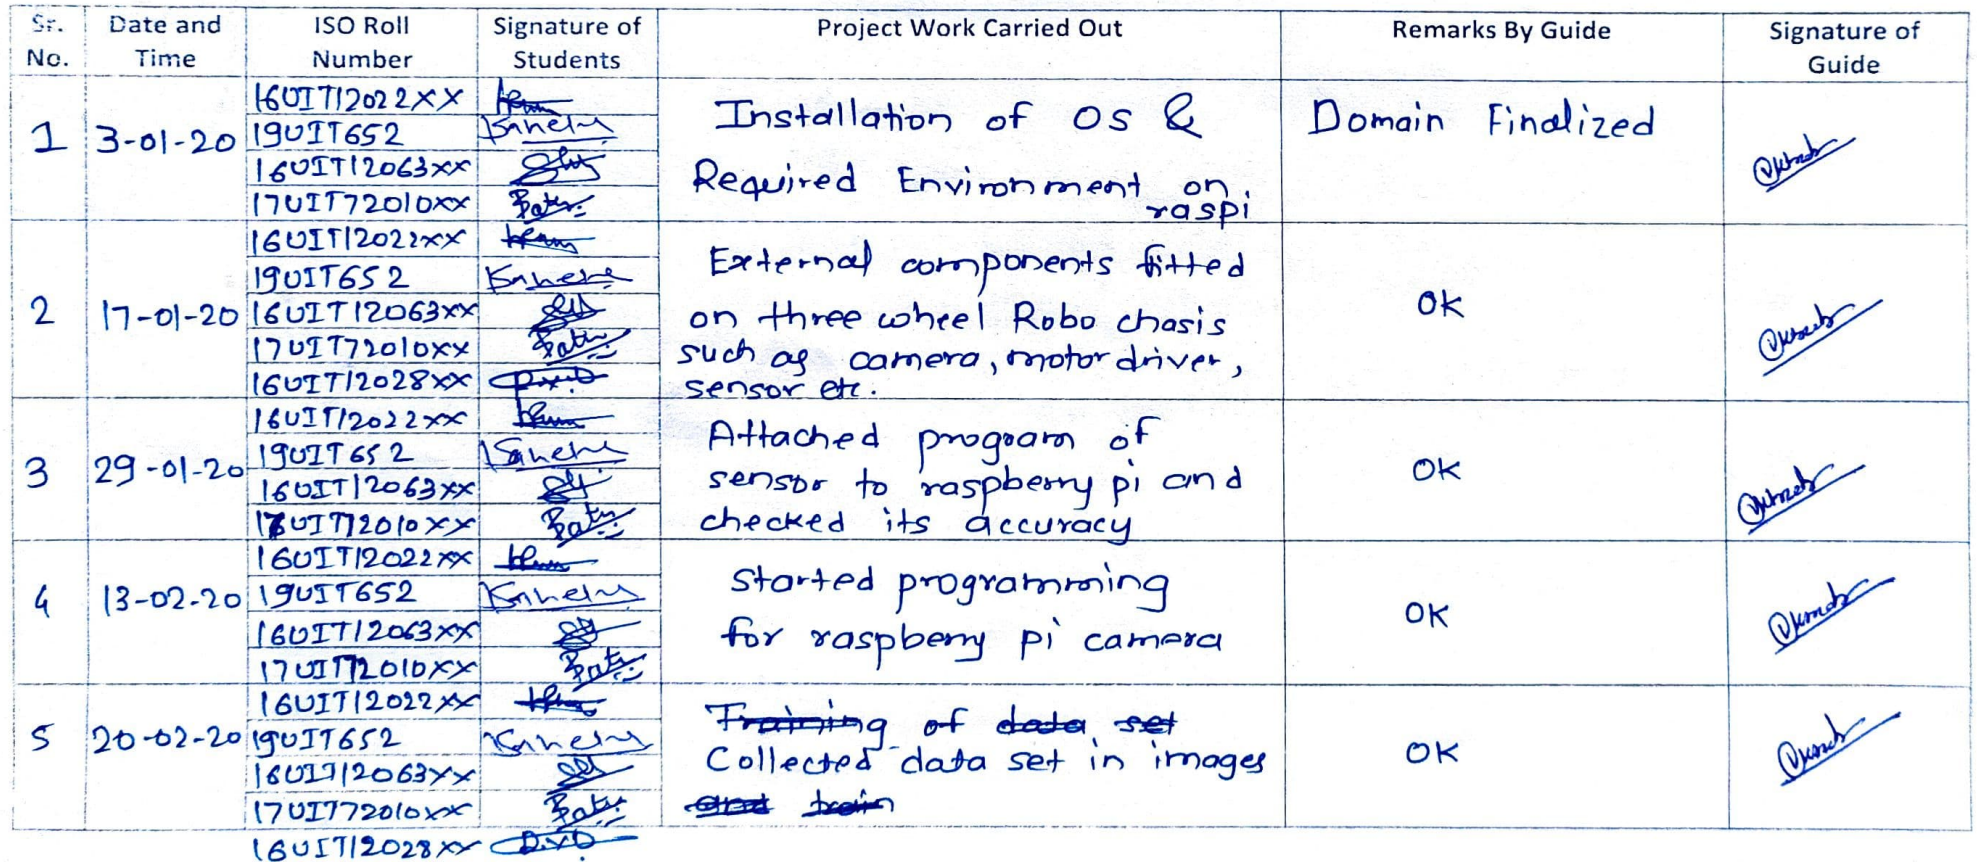 Sr. No. Date and Time ISO Roll Number Signature of Students Project Work Carried Out Remarks By Guide Signature of Guide
1 3-01-20
16UIT12022XX
19UIT652
16UIT12063XX
17UIT72010XX
Installation of OS &
Required Environment on
raspi
Domain Finalized
2 17-01-20
16UIT12022XX
19UIT652
16UIT12063XX
17UIT72010XX
16UIT12028XX
External components fitted
on three wheel Robo chasis
such as camera, motor driver,
sensor etc.
OK
3 29-01-20
16UIT12022XX
19UIT652
16UIT12063XX
17UIT72010XX
Attached program of
sensor to raspberry pi and
checked its accuracy
OK
4 13-02-20
16UIT12022XX
19UIT652
16UIT12063XX
17UIT72010XX
Started programming
for raspberry pi camera
OK
5 20-02-20
16UIT12022XX
19UIT652
16UIT12063XX
17UIT72010XX
16UIT12028XX
Training of data set
Collected data set in images
and train
OK